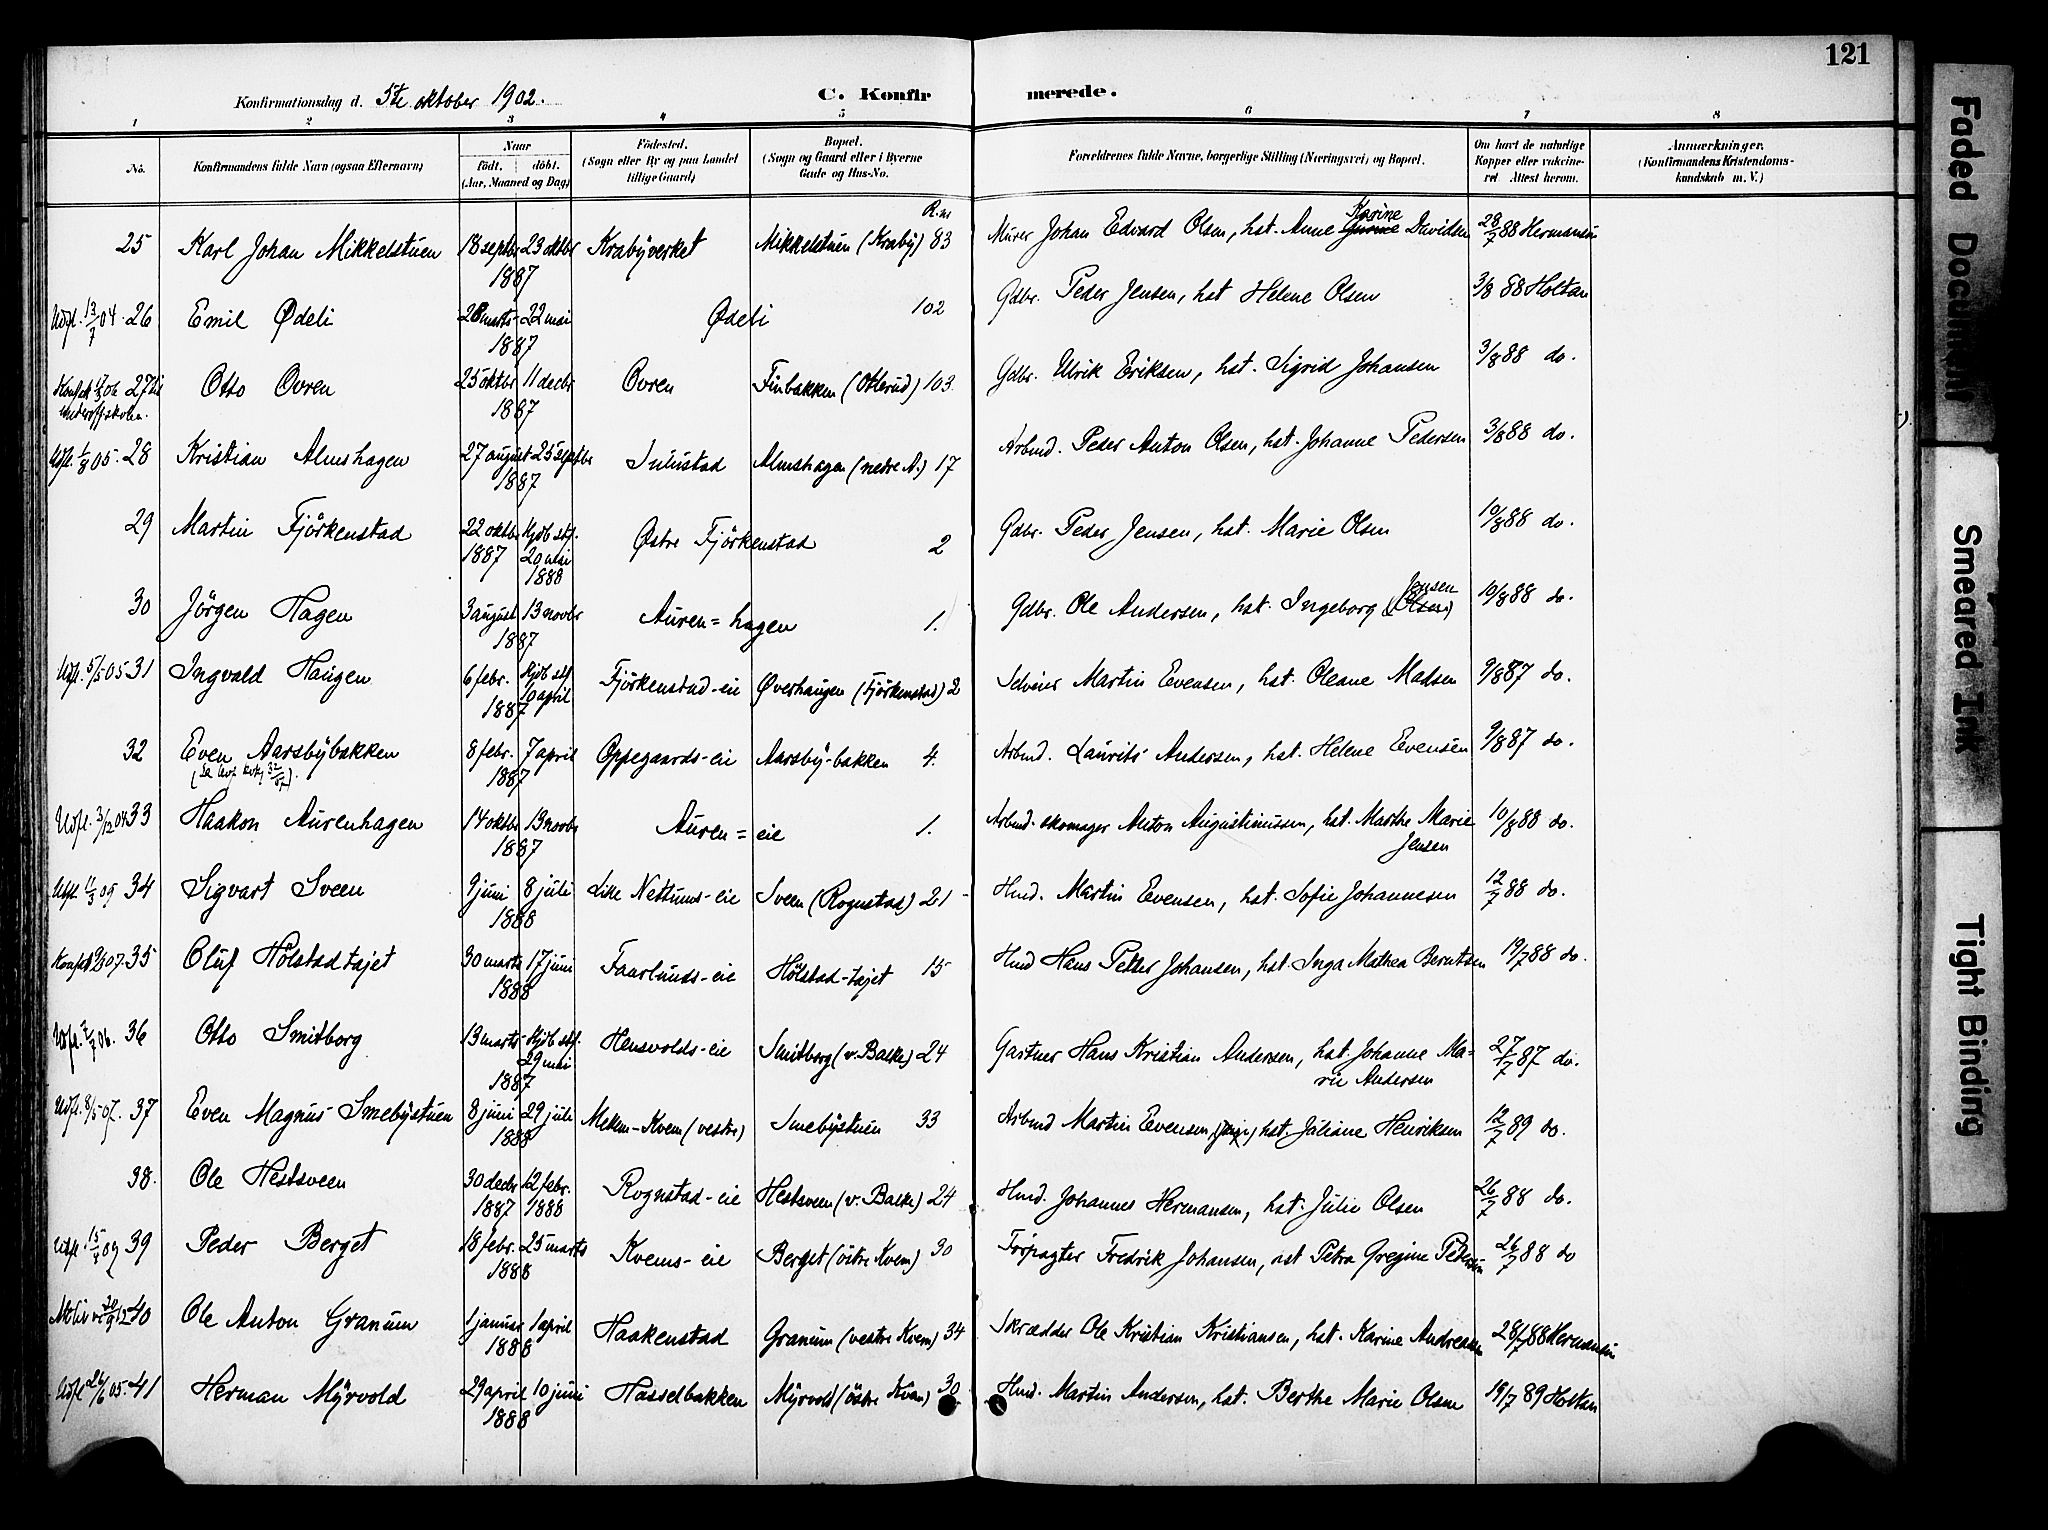 121
Konfirmationsdag d. 5te oktober 1902.
C. Konfirmerede.
1 2 3 4 5 6 7 8
No. Konfirmandens fulde Navn (ogsaa Efternavn) Naar født. døbt. (Aar, Maaned og Dag) Födested. (Sogn eller By og paa Landet tillige Gaard.) Bopæl. (Sogn og Gaard eller i Byerne Gade og Hus-No. Forældrenes fulde Navne, borgerlige Stilling (Næringsvei) og Bopæl. Om havt de naturlige Kopper eller vakcineret. Attest herom. Anmærkninger. (Konfirmandens Kristendomskundskab m. V.)
25 Karl Johan Mikkelstuen 18 septbr 23 oktbr 1887 Krabyverket Mikkelstuen (Kraby) 83 Murer Johan Edvard Olsen, hst. Anne Karine Davidsen 28/7 88 Hermansen
Udfl. 13/7 04. 26 Emil Ødeli 28 marts 22 mai 1887 Ødeli 102 Gdbr. Peder Jensen, hst Helene Olsen 3/8 88 Holtan
27 Otto Ovren 25 oktbr 11 decbr 1887 Ovren Finbakken (Otterud) 103. Gdbr. Ulrik Eriksen, hst. Sigrid Johansen 3/8 88 do.
Udfl. 1/8 05. 28 Kristian Almshagen 27 august 25 septbr 1887 Julustad Almshagen (nedre A.) 17 Arbmd. Peder Anton Olsen, hst. Johanne Pedersen 3/8 88 do.
29 Martin Fjörkenstad 22 oktbr 1887 Hjdb. stf. 20 mai 1888 Østre Fjörkenstad 2 Gdbr. Peder Jensen, hst. Marie Olsen 10/8 88 do.
30 Jörgen Hagen 3 august 13 novbr 1887 Auren=hagen 1. Gdbr. Ole Andersen, hst. Ingeborg Jensen (Olsen) 10/8 88 do.
Udfl. 5/5 05 31 Ingvald Haugen 6 febr. Hjdb. stf. 10 april 1887 Fjörkenstad-eie Øverhaugen (Fjörkenstad) 2 Selveier Martin Evensen, hst. Oleane Madsen 9/8 87 do.
32 Even Aarsbybakken 8 febr. 7 april 1887 Oppegaards-eie Aarsby-bakken 4. Arbmd. Laurits Andersen, hst. Helene Evensen 9/8 87 do.
Udfl. 3/12 04 33 Haakon Aurenhagen 14 oktbr 13 novbr 1887 Auren=eie 1. Arbmd. skomager Anton Augustinussen, hst. Marthe Marie Jensen 10/8 88 do.
Udfl. 11/3 09 34 Sigvart Sveen 9 juni 8 juli 1888 Lille Nettums-eie Sveen (Rognstad) 21 Hmd. Martin Evensen, hst. Sofie Johannesen 12/7 88 do.
35 Oluf Hölstadtajet 30 marts 17 juni 1888 Faarlunds-eie Hölstad-tajet 15 Hmd Hans Petter Johansen, hst. Inga Mathea Berntsen 19/7 88 do.
36 Otto Smitborg 13 marts Hjdb. stf. 29 mai 1887 Hensvolds-eie Smitborg (v. Balke) 24 Gartner Hans Kristian Andersen, hst. Johanne Marie Andersen 27/7 87 do.
Udfl. 8/5 07. 37 Even Magnus Smebystuen 8 juni 29 juli 1888 Mellem-Kvem (vestre) Smebystuen 33 Arbmd Martin Evensen, hst. Juliane Henriksen 12/7 89 do.
38. Ole Hestsveen 30 decbr 1887 12 febr. 1888 Rognstad-eie Hestsveen (v. Balke) 24 Hmd. Johannes Hermansen, hst. Julie Olsen 26/7 88 do.
39 Peder Berget 18 febr. 25 marts 1888 Kvems-eie Berget (östre Kvem) 30 Forpagter Fredrik Johansen, hst Petra Gregine Pedersen 26/7 88 do
40 Ole Anton Granum 1 januar 1 april 1888 Haakenstad Granum (vestre Kvem) 34 Skrædder Ole Kristian Kristiansen, hst. Karine Andreasen 28/7 88 Hermansen
Udfl 26/6 05 41 Herman Myrvold 29 april 10 juni 1888 Hasselbakken Myrvold (östre Kvem) 30 Hmd. Martin Andersen, hst. Berthe Marie Olsen 19/7 89 Holtan
Faded Document
Smeared Ink
Tight Binding